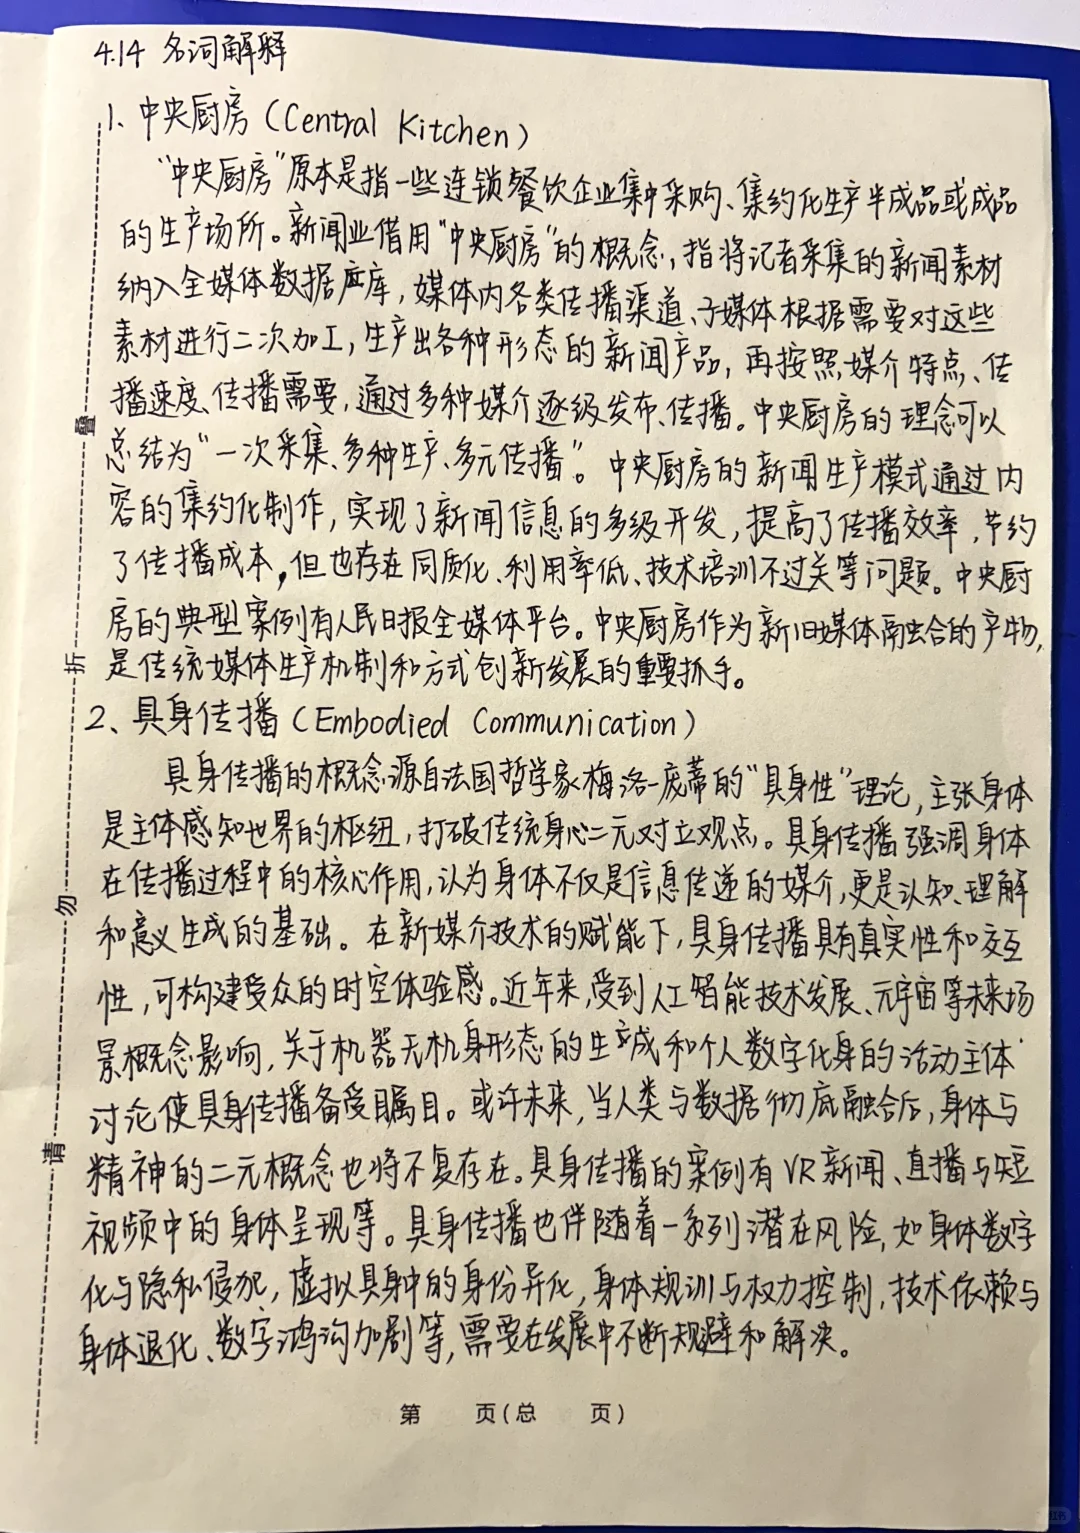 4.14 名词解释
1、中央厨房（Central Kitchen）
“中央厨房”原本是指一些连锁餐饮企业集中采购、集约化生产半成品或成品
的生产场所。新闻业借用“中央厨房”的概念，指将记者采集的新闻素材
纳入全媒体数据库，媒体内各类传播渠道、子媒体根据需要对这些
素材进行二次加工，生产出各种形态的新闻产品，再按照媒介特点、传
播速度、传播需要，通过多种媒介逐级发布、传播。中央厨房的理念可以
总结为“一次采集、多种生产、多元传播”。中央厨房的新闻生产模式通过内
容的集约化制作，实现了新闻信息的多级开发，提高了传播效率，节约
了传播成本，但也存在同质化、利用率低、技术培训不过关等问题。中央厨
房的典型案例有人民日报全媒体平台。中央厨房作为新旧媒体融合的产物，
是传统媒体生产机制和方式创新发展的重要抓手。
2、具身传播（Embodied Communication）
具身传播的概念源自法国哲学家梅洛-庞蒂的“具身性”理论，主张身体
是主体感知世界的枢纽，打破传统身心二元对立观点。具身传播强调身体
在传播过程中的核心作用，认为身体不仅是信息传递的媒介，更是认知、理解
和意义生成的基础。在新媒介技术的赋能下，具身传播具有真实性和交互
性，可构建受众的时空体验感。近年来，受到人工智能技术发展、元宇宙等未来场
景概念影响，关于机器无机身形态的生成和个人数字化身的活动主体
讨论使具身传播备受瞩目。或许未来，当人类与数据彻底融合后，身体与
精神的二元概念也将不复存在。具身传播的案例有VR新闻、直播与短
视频中的身体呈现等。具身传播也伴随着一系列潜在风险，如身体数字
化与隐私侵犯，虚拟具身中的身份异化，身体规训与权力控制，技术依赖与
身体退化、数字鸿沟加剧等，需要在发展中不断规避和解决。
第 页（总 页）
请 勿 折 叠